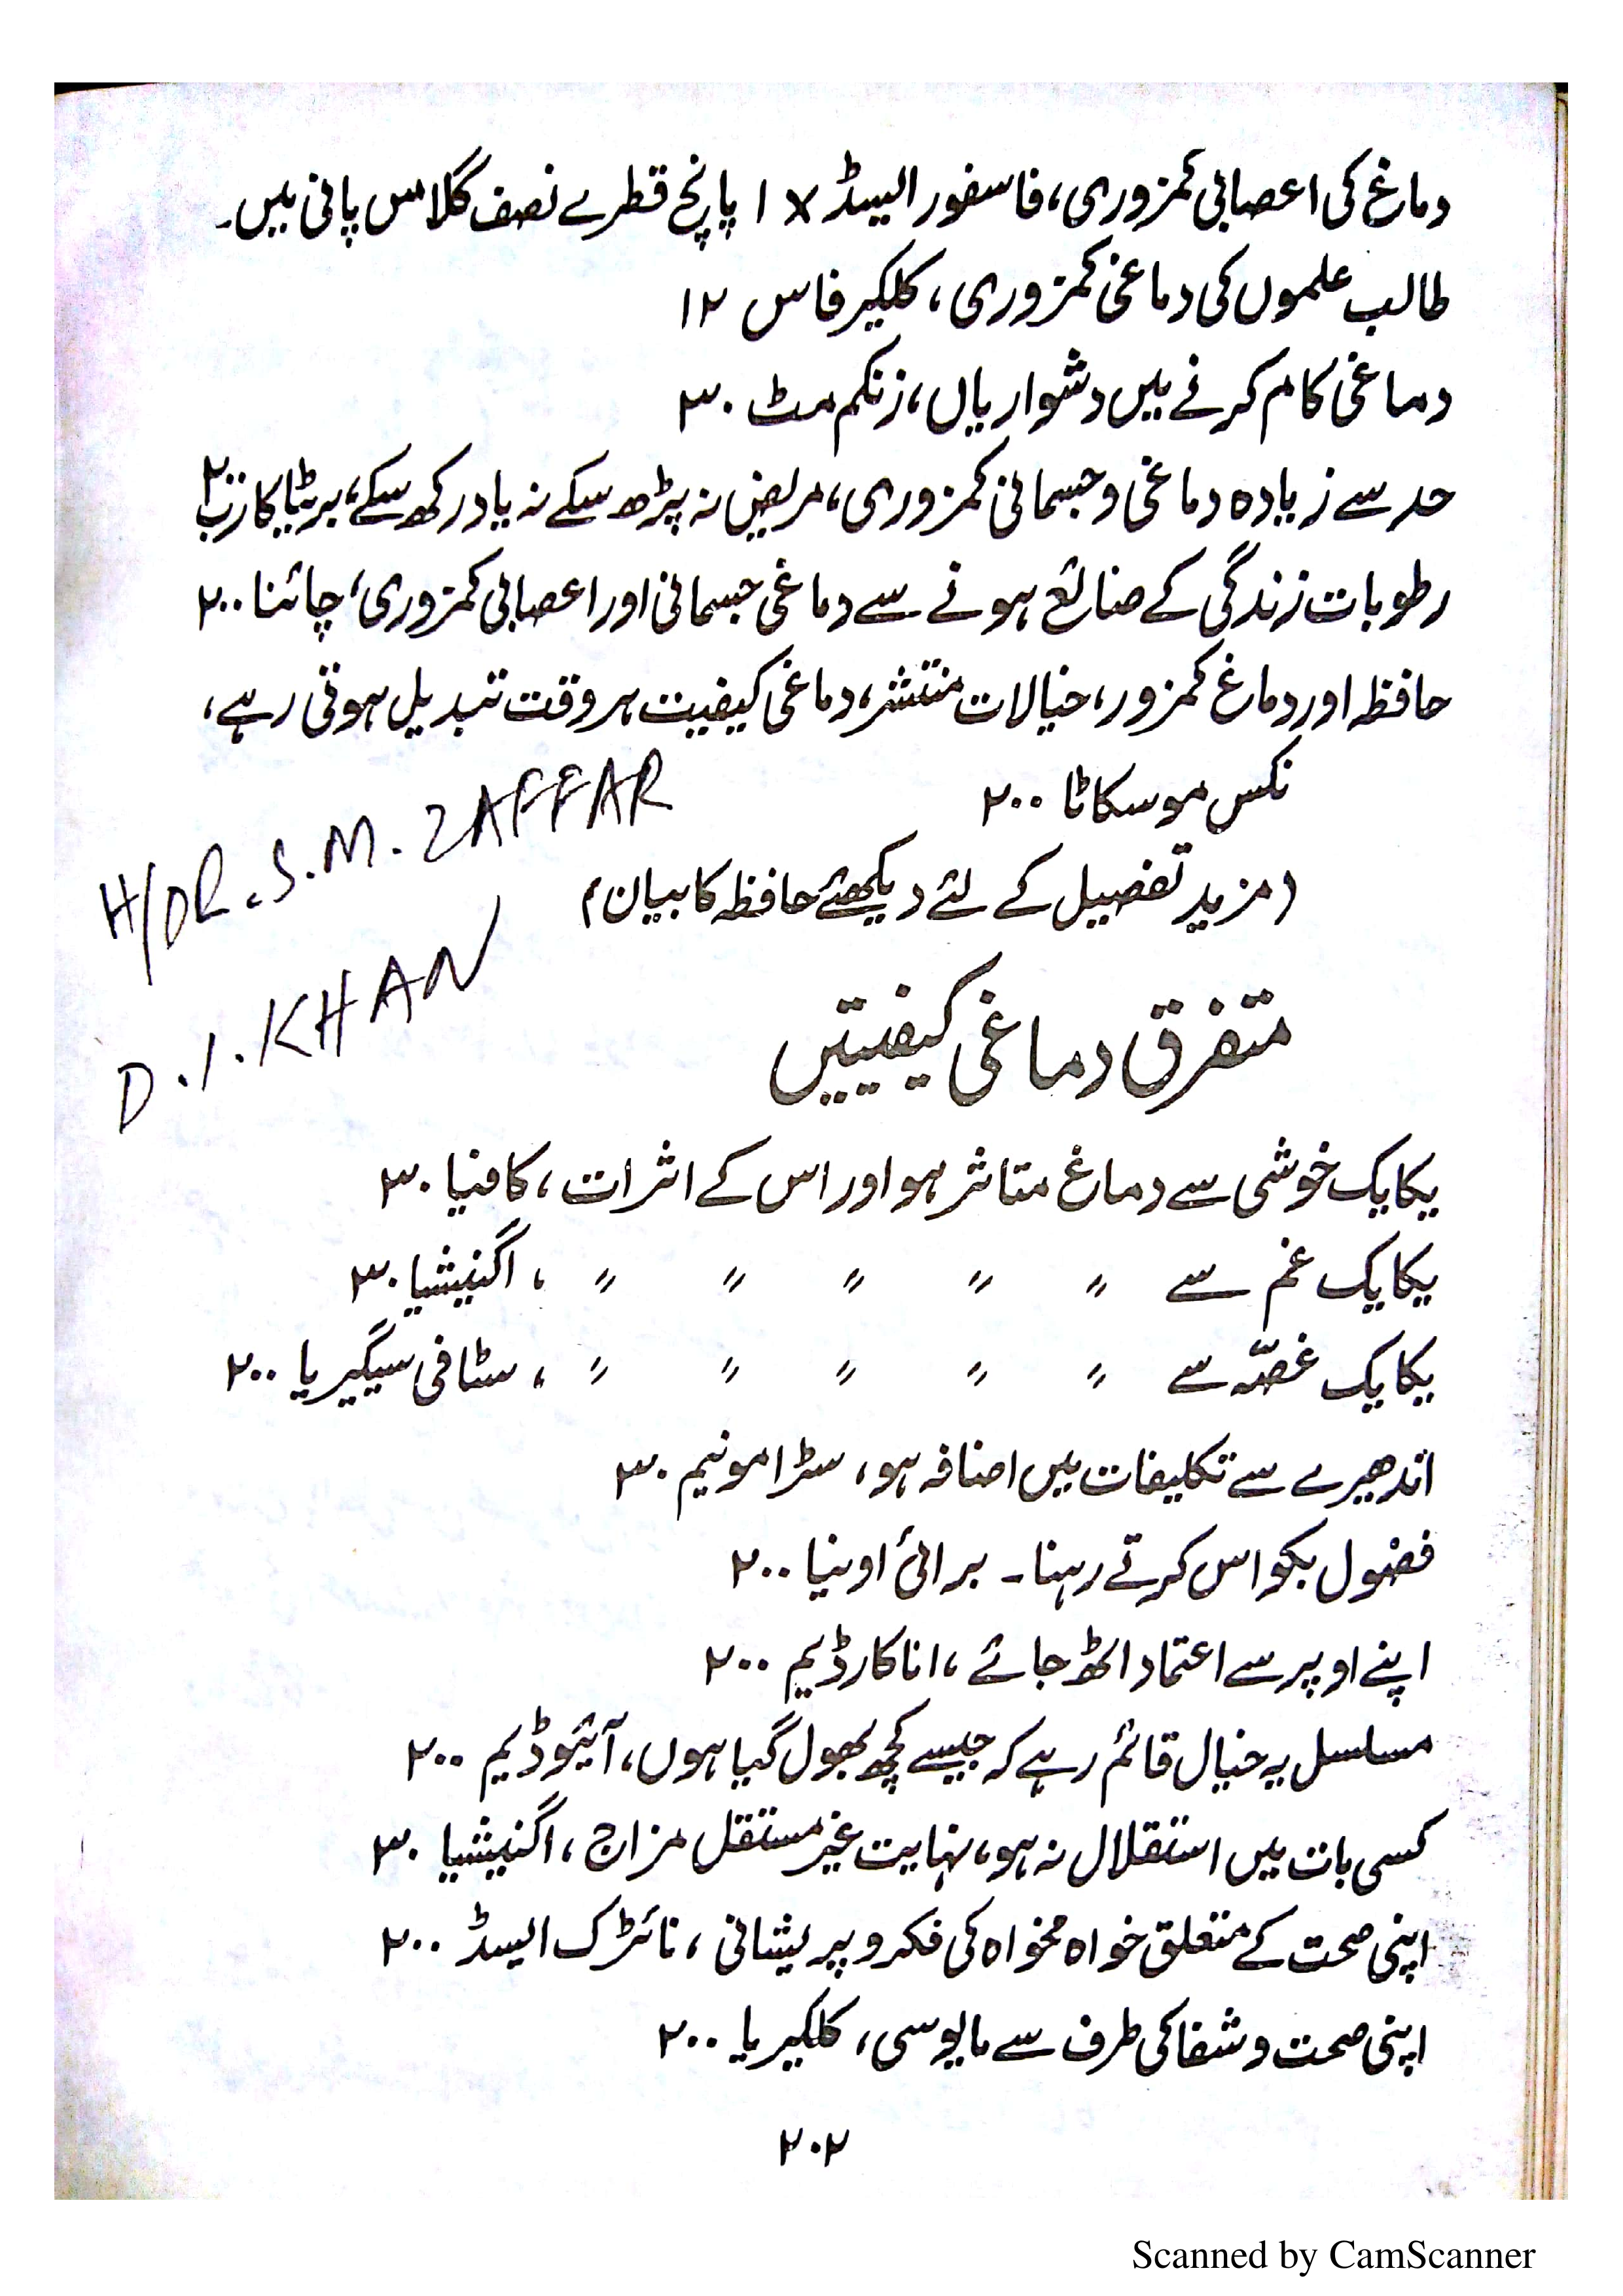 دماغ کی اعصابی کمزوری، فاسفورالیسڈ ۱x پانچ قطرے نصف گلاس پانی میں۔
طالب علموں کی دماغی کمزوری، کلکیر فاس ۱۲
دماغی کام کرنے میں دشواریاں، زنکم مٹ ۳۰
حد سے زیادہ دماغی وجسمانی کمزوری، مریض نہ پڑھ سکے نہ یاد رکھ سکے، بریٹا کارب ۲۰۰
رطوبات زندگی کے ضائع ہونے سے دماغی جسمانی اور اعصابی کمزوری، چائنا ۲۰۰
حافظہ اور دماغ کمزور، خیالات منتشر، دماغی کیفیت ہر وقت تبدیل ہوتی رہے،
نکس موسکاٹا ۲۰۰
H/DR. S.M. ZAFFAR
(مزید تفصیل کے لئے دیکھئے حافظہ کا بیان)
D.I.KHAN
متفرق دماغی کیفیتیں
یکایک خوشی سے دماغ متاثر ہو اور اس کے اثرات، کافیا ۳۰
یکایک غم سے 〃 〃 〃 〃 〃 ، اگنیشیا ۳۰
یکایک غصّہ سے 〃 〃 〃 〃 〃 ، سٹافی سیگیریا ۲۰۰
اندھیرے سے تکلیفات میں اضافہ ہو، سٹرامونیم ۳۰
فضول بکواس کرتے رہنا۔ برائی اونیا ۲۰۰
اپنے اوپر سے اعتماد اٹھ جائے، اناکارڈیم ۲۰۰
مسلسل یہ خیال قائم رہے کہ جیسے کچھ بھول گیا ہوں، آئیوڈیم ۲۰۰
کسی بات میں استقلال نہ ہو، نہایت غیر مستقل مزاج، اگنیشیا ۳۰
اپنی صحت کے متعلق خواہ مخواہ کی فکر و پریشانی، نائٹرک ایسڈ ۲۰۰
اپنی صحت و شفا کی طرف سے مایوسی، کلکیریا ۲۰۰
۲۰۲
Scanned by CamScanner